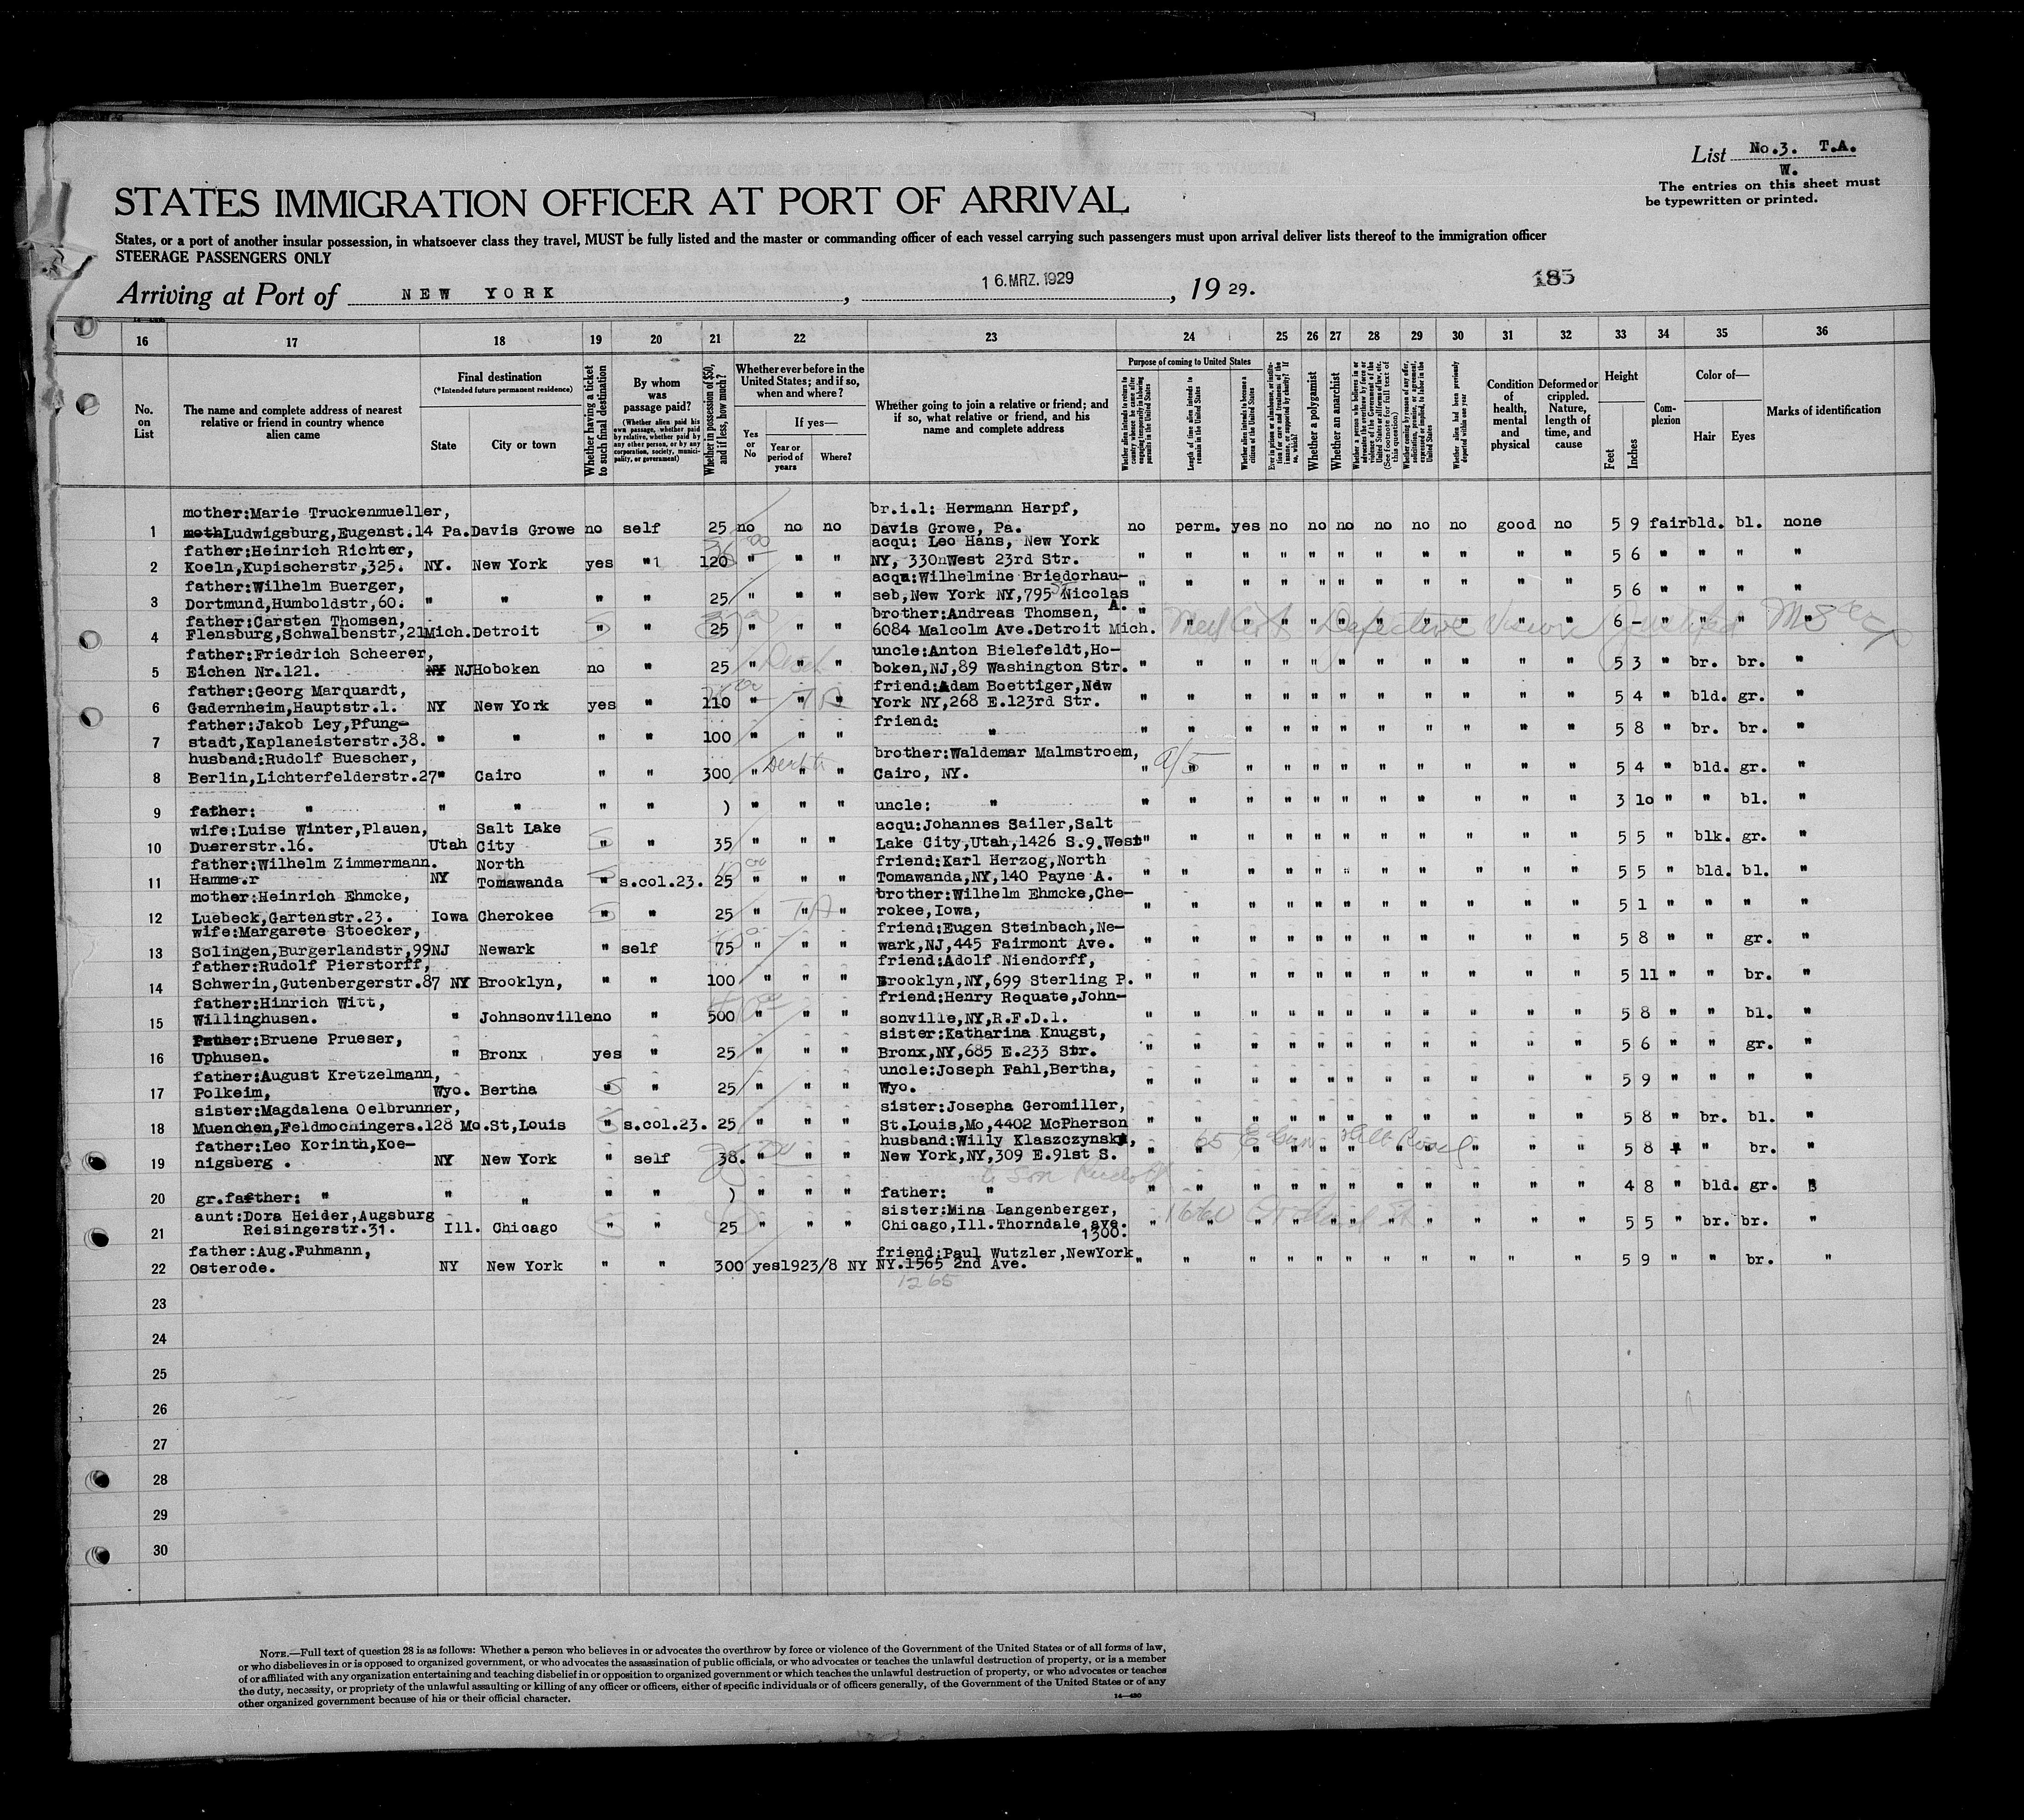 List No.3. T.A.
W.
The entries on this sheet must
be typewritten or printed.
STATES IMMIGRATION OFFICER AT PORT OF ARRIVAL
States, or a port of another insular possession, in whatsoever class they travel, MUST be fully listed and the master or commanding officer of each vessel carrying such passengers must upon arrival deliver lists thereof to the immigration officer
STEERAGE PASSENGERS ONLY
Arriving at Port of NEW YORK, 16.MRZ.1929, 19 29.
185
16 17 18 19 20 21 22 23 24 25 26 27 28 29 30 31 32 33 34 35 36
No. on List
The name and complete address of nearest relative or friend in country whence alien came
Final destination
(*Intended future permanent residence)
State
City or town
Whether having a ticket to such final destination
By whom was passage paid?
(Whether alien paid his own passage, whether paid by relative, whether paid by any other person, or by any corporation, society, municipality, or government)
Whether in possession of $50, and if less, how much?
Whether ever before in the United States; and if so, when and where?
Yes or No
If yes—
Year or period of years
Where?
Whether going to join a relative or friend; and if so, what relative or friend, and his name and complete address
Purpose of coming to United States
Whether alien intends to return to country whence he came after engaging temporarily in laboring pursuits in the United States
Length of time alien intends to remain in the United States
Whether alien intends to become a citizen of the United States
Ever in prison or almshouse, or institution for care and treatment of the insane, or supported by charity? If so, which?
Whether a polygamist
Whether an anarchist
Whether a person who believes in or advocates the overthrow by force or violence of the Government of the United States or all forms of law, etc. (See footnote for full text of this question)
Whether coming by reason of any offer, solicitation, promise, or agreement, expressed or implied, to labor in the United States
Whether alien had been previously deported within one year
Condition of health, mental and physical
Deformed or crippled. Nature, length of time, and cause
Height
Feet
Inches
Complexion
Color of—
Hair
Eyes
Marks of identification
mother:Marie Truckenmueller, br.i.l: Hermann Harpf,
1 Ludwigsburg,Eugenst.14 Pa. Davis Growe no self 25 no no no Davis Growe, Pa. no perm. yes no no no no no no good no 5 9 fair bld. bl. none
father:Heinrich Richter, acqu: Leo Hans, New York
2 Koeln,Kupischerstr,325. NY. New York yes "1 120 " " " NY, 330nWest 23rd Str. " " " " " " " " " " " 5 6 " " " "
father:Wilhelm Buerger, acqu:Wilhelmine Briedorhau-
3 Dortmund,Humboldstr,60. " " " " 25 " " " seb,New York NY,795 St Nicolas A. " " " " " " " " " " " 5 6 " " " "
father:Carsten Thomsen, brother:Andreas Thomsen,
4 Flensburg,Schwalbenstr,21 Mich. Detroit " " 25 " " " 6084 Malcolm Ave.Detroit Mich. " " " " " " " " " " " 6 - " " " "
Med Cert Defective Vision
father:Friedrich Scheerer, uncle:Anton Bielefeldt,Ho-
5 Eichen Nr.121. NY NJ Hoboken no " 25 " " " boken,NJ,89 Washington Str. " " " " " " " " " " " 5 3 " br. br. "
father:Georg Marquardt, friend:Adam Boettiger,New
6 Gadernheim,Hauptstr.1. NY New York yes " 110 " " " York NY,268 E.123rd Str. " " " " " " " " " " " 5 4 " bld. gr. "
father:Jakob Ley,Pfung- friend:
7 stadt,Kaplaneisterstr.38. " " " " 100 " " " " " " " " " " " " " " " " 5 8 " br. br. "
husband:Rudolf Buescher, brother:Waldemar Malmstroem,
8 Berlin,Lichterfelderstr.27 " Cairo " " 300 " " " Cairo, NY. " " " " " " " " " " " 5 4 " bld. gr. "
9 father: " " " " " ) " " " uncle: " " " " " " " " " " " " 3 10 " " bl. "
wife:Luise Winter,Plauen, Salt Lake acqu:Johannes Sailer,Salt
10 Duererstr.16. Utah City " " 35 " " " Lake City,Utah,1426 S.9.West " " " " " " " " " " " 5 5 " blk. gr. "
father:Wilhelm Zimmermann. North friend:Karl Herzog,North
11 Hamme.r NY Tomawanda " s.col.23. 25 " " " Tomawanda,NY,140 Payne A. " " " " " " " " " " " 5 5 " bld. bl. "
mother:Heinrich Ehmcke, brother:Wilhelm Ehmcke,Che-
12 Luebeck,Gartenstr.23. Iowa Cherokee " " 25 " " " rokee,Iowa, " " " " " " " " " " " 5 1 " " " "
wife:Margarete Stoecker, friend:Eugen Steinbach,Ne-
13 Solingen,Burgerlandstr,99 NJ Newark " self 75 " " " wark,NJ,445 Fairmont Ave. " " " " " " " " " " " 5 8 " " gr. "
father:Rudolf Pierstorff, friend:Adolf Niendorff,
14 Schwerin,Gutenbergerstr.87 NY Brooklyn, " " 100 " " " Brooklyn,NY,699 Sterling P. " " " " " " " " " " " 5 11 " " br. "
father:Hinrich Witt, friend:Henry Requate,John-
15 Willinghusen. " Johnsonville no " 500 " " " sonville,NY,R.F.D.1. " " " " " " " " " " " 5 8 " " bl. "
Father:Bruene Prueser, sister:Katharina Knugst,
16 Uphusen. " Bronx yes " 25 " " " Bronx,NY,685 E.233 Str. " " " " " " " " " " " 5 6 " " gr. "
father:August Kretzelmann, uncle:Joseph Fahl,Bertha,
17 Polkeim, Wyo. Bertha " " 25 " " " Wyo. " " " " " " " " " " " 5 9 " " " "
sister:Magdalena Oelbrunner, sister:Josepha Geromiller,
18 Muenchen,Feldmochingers.128 Mo. St,Louis " s.col.23. 25 " " " St.Louis,Mo,4402 McPherson " " " " " " " " " " " 5 8 " br. bl. "
father:Leo Korinth,Koe- husband:Willy Klaszczynski,
19 nigsberg . NY New York " self 38. " " " New York,NY,309 E.91st S. " " " " " " " " " " " 5 8 " " br. "
20 gr.father: " " " " " ) " " " father: " " " " " " " " " " " " 4 8 " bld. gr. "
aunt:Dora Heider,Augsburg sister:Mina Langenberger,
21 Reisingerstr.31. Ill. Chicago " " 25 " " " Chicago,Ill.Thorndale ave. 1300. " " " " " " " " " " " 5 5 " br. br. "
1660 Orchard St
father:Aug.Fuhmann, friend:Paul Wutzler,NewYork
22 Osterode. NY New York " " 300 yes 1923/8 NY NY.1565 2nd Ave. " " " " " " " " " " " 5 9 " " br. "
1265
23
24
25
26
27
28
29
30
NOTE.—Full text of question 28 is as follows: Whether a person who believes in or advocates the overthrow by force or violence of the Government of the United States or of all forms of law,
or who disbelieves in or is opposed to organized government, or who advocates the assassination of public officials, or who advocates or teaches the unlawful destruction of property, or is a member
of or affiliated with any organization entertaining and teaching disbelief in or opposition to organized government or which teaches the unlawful destruction of property, or who advocates or teaches
the duty, necessity, or propriety of the unlawful assaulting or killing of any officer or officers, either of specific individuals or of officers generally, of the Government of the United States or of any
other organized government because of his or their official character.
14—430